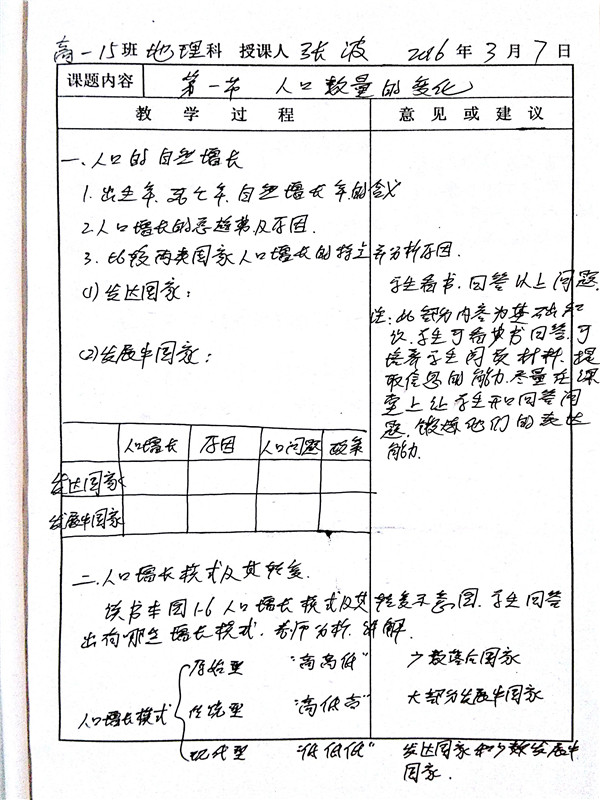 高一15班 地理科 授课人 张波 2016年3月7日
课题内容 第一节 人口数量的变化
教学过程 意见或建议
一、人口的自然增长
1.出生率、死亡率、自然增长率的含义
2.人口增长的总趋势及原因.
3.比较两类国家人口增长的特点并分析原因.
(1)发达国家：
(2)发展中国家：
学生看书.回答以上问题.
注：此部分内容为基础知
识.学生可看书回答.可
培养学生阅读材料.提
取信息的能力.尽量在课
堂上让学生开口回答问
题.锻炼他们的表达
能力.
人口增长 原因 人口问题 政策
发达国家
发展中国家
二.人口增长模式及其转变.
读书本图1-6人口增长模式及其转变示意图.学生回答
出有哪些增长模式.老师分析.讲解.
人口增长模式
原始型 “高高低” 少数落后国家
传统型 “高低高” 大部分发展中国家
现代型 “低低低” 发达国家和少数发展中
国家.